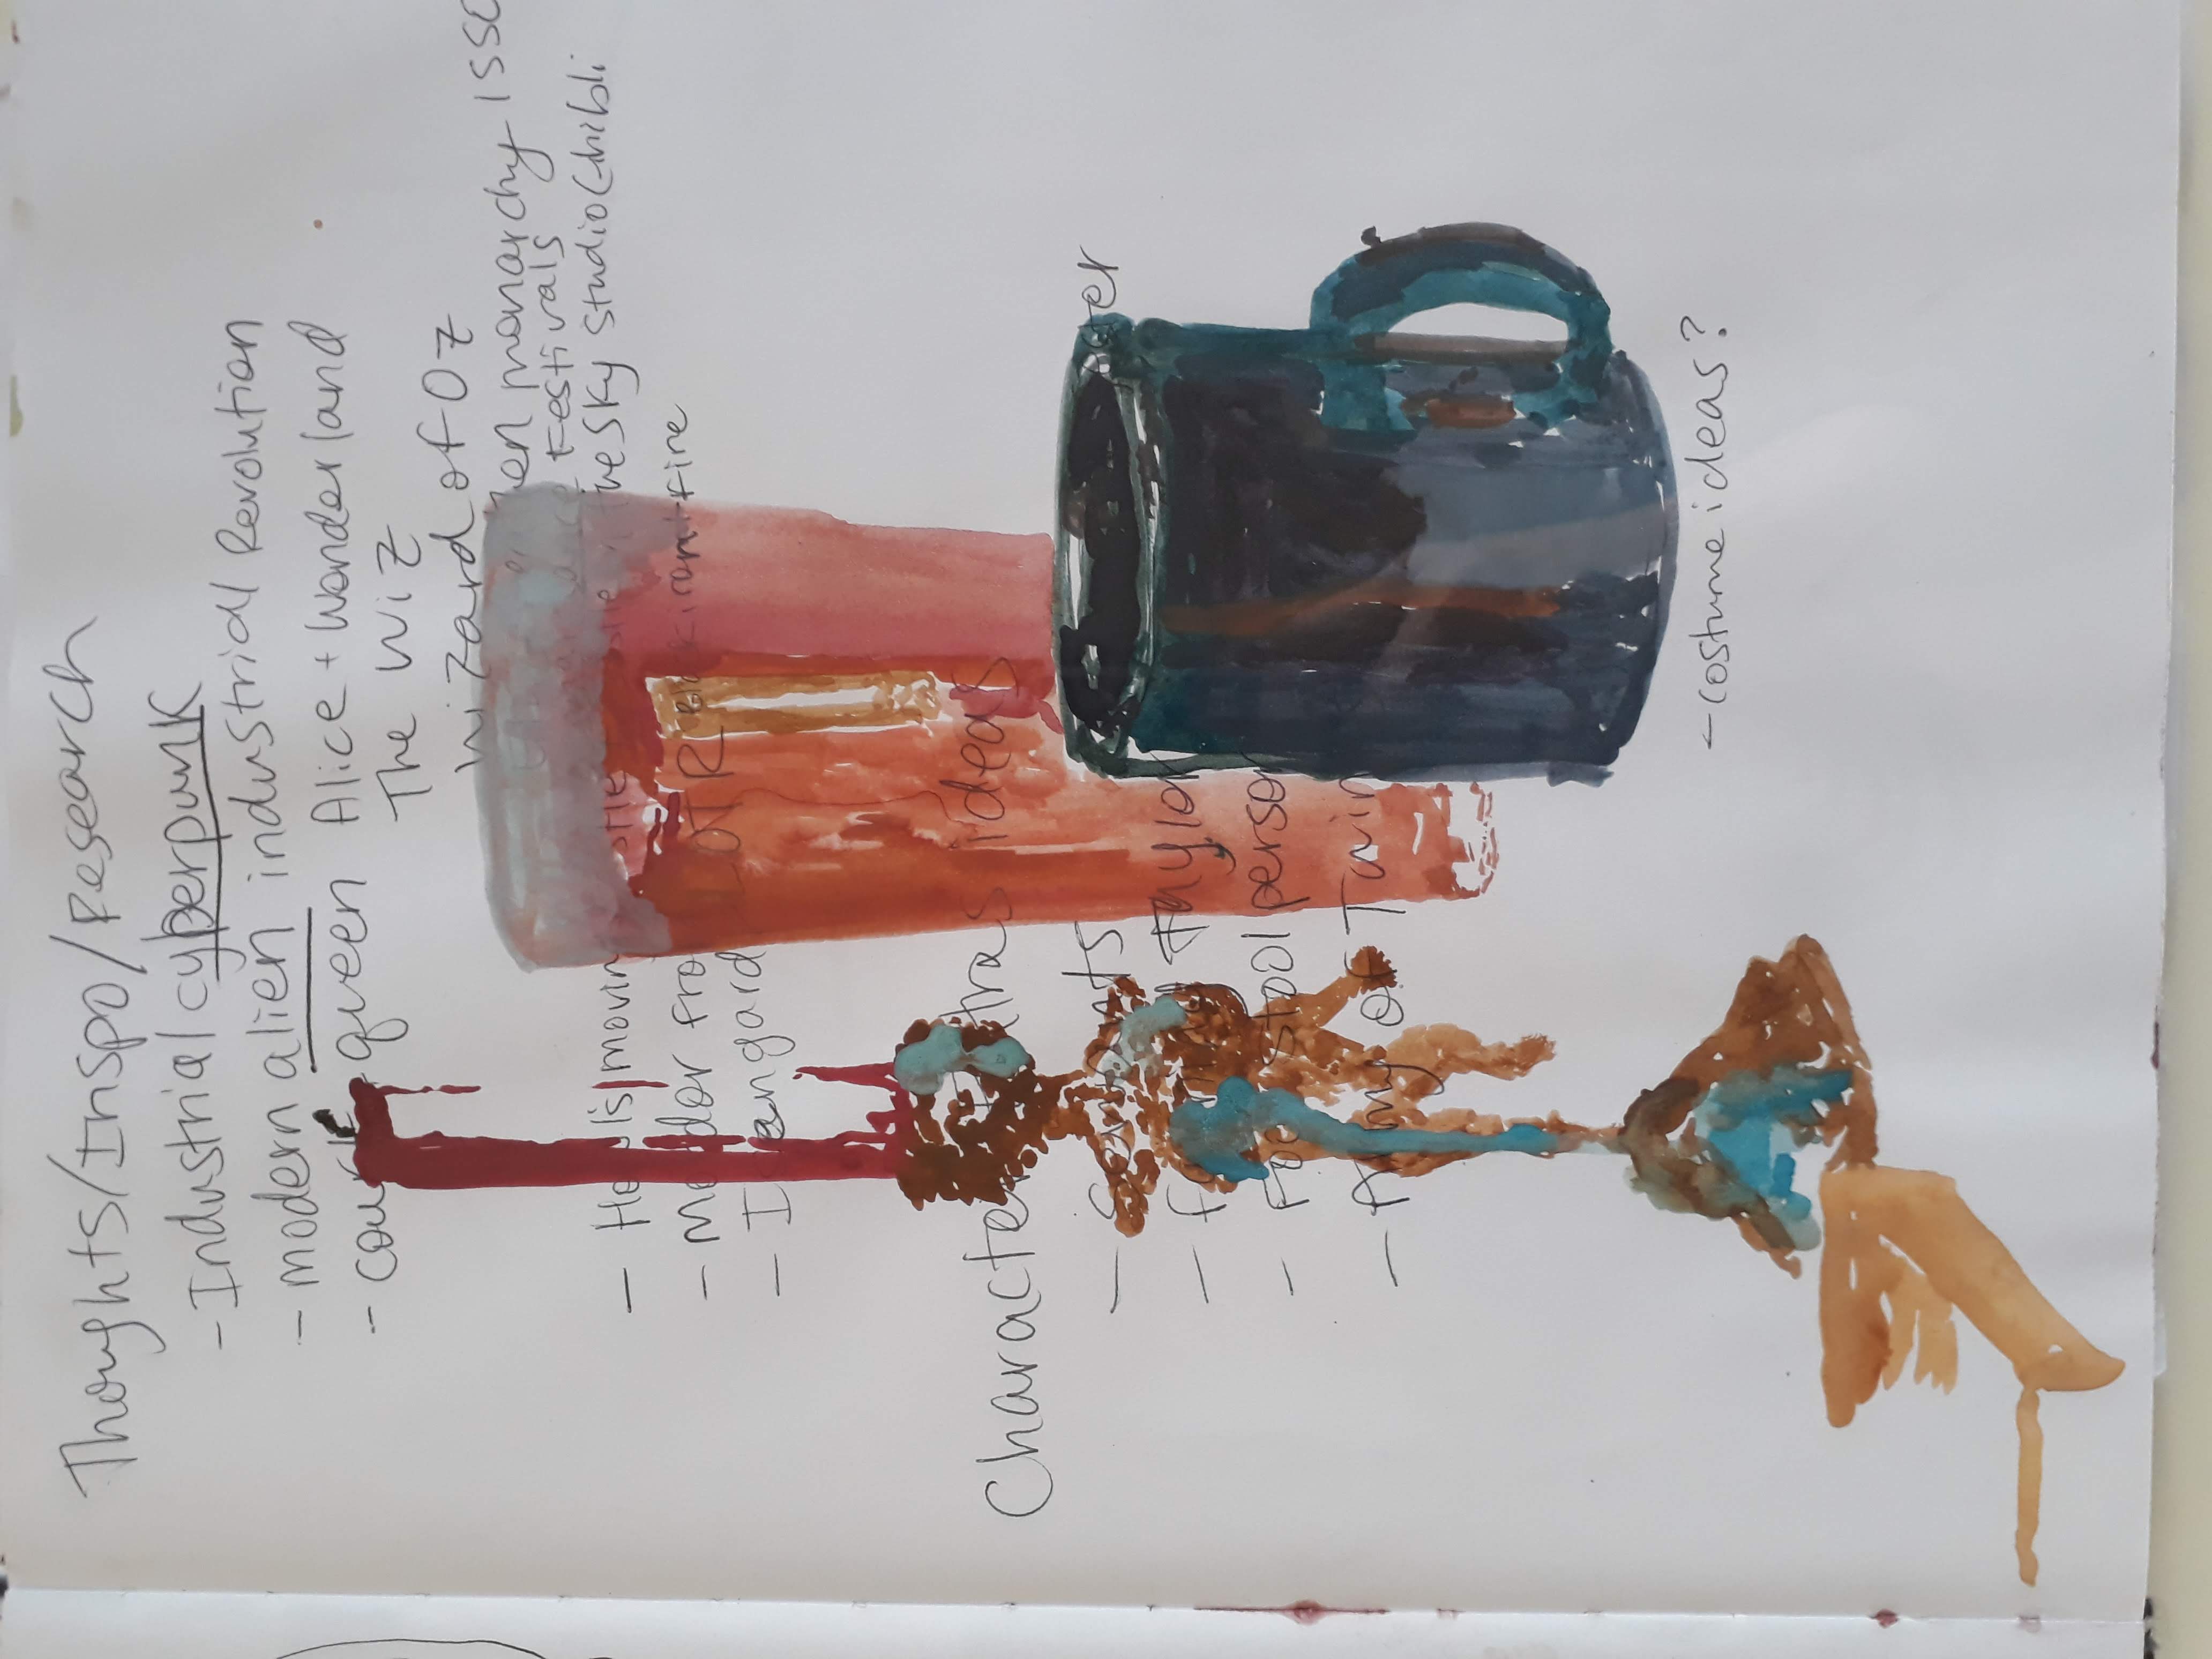 Thoughts/Inspo/Research
- Industrial cyberpunk
- modern alien industrial Revolution
- court queen Alice + Wonderland
The Wiz
Wizard of Oz
monarchy 1550
Festivals
- Howl's moving the Sky Studio Ghibli
- Mordor from LOTR Black iron + Fire
- Isengard
Character Extras ideas
- servants
- Taylor
- Foot stool person
- Army of Twin
- costume ideas?